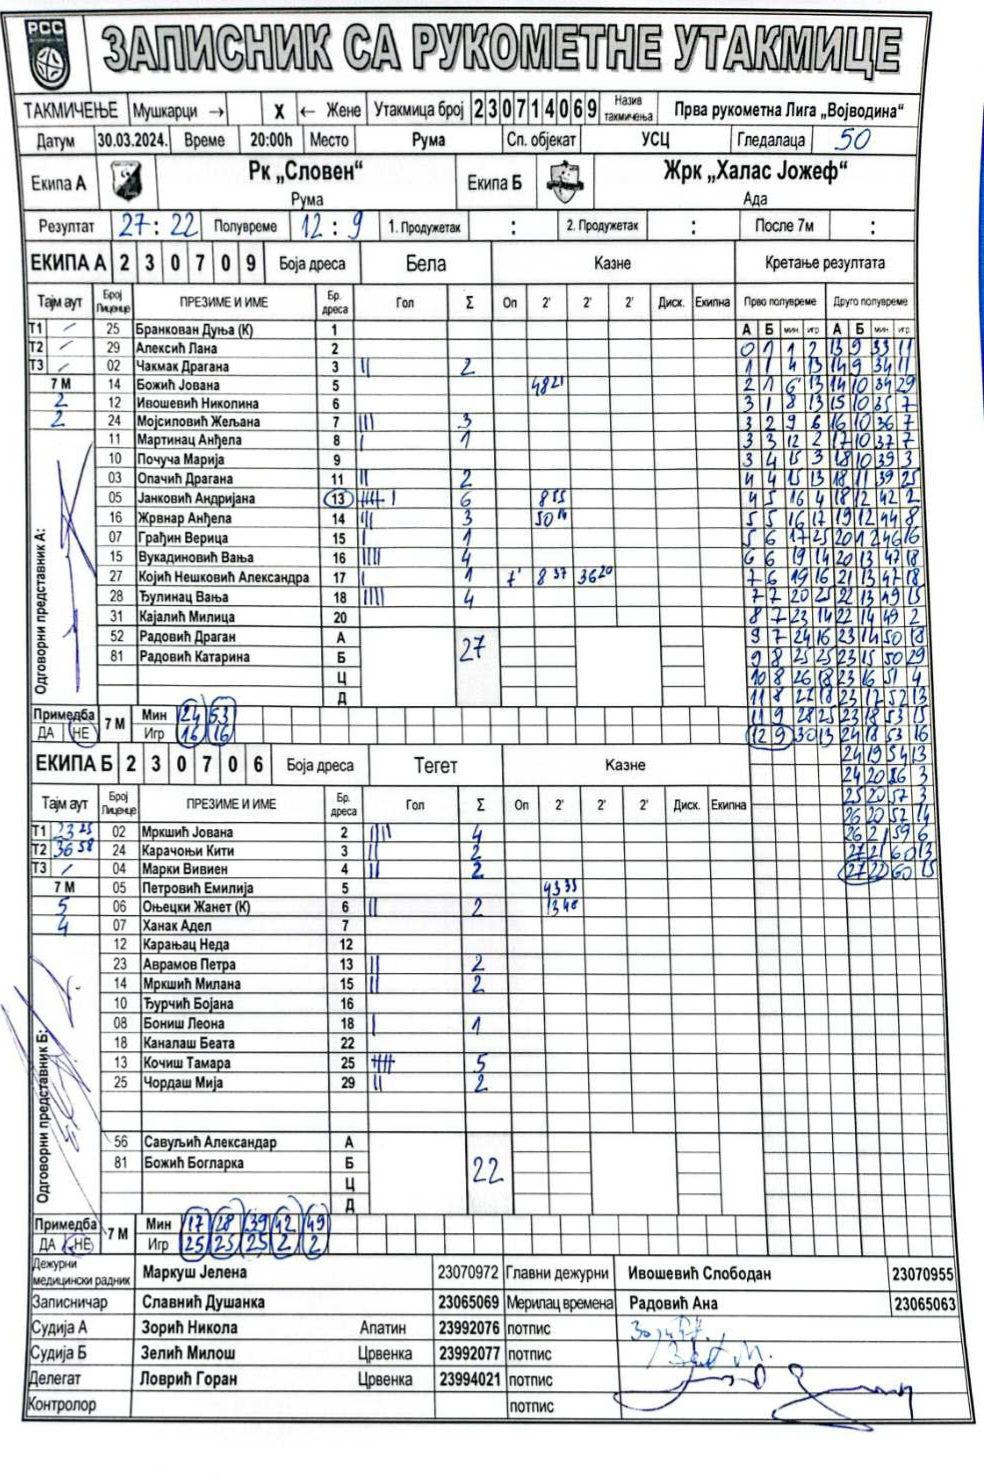 РСС
ЗАПИСНИК СА РУКОМЕТНЕ УТАКМИЦЕ
ТАКМИЧЕЊЕ Мушкарци → X ← Жене Утакмица број 2 3 0 7 1 4 0 6 9 Назив такмичења Прва рукометна Лига „Војводина“
Датум 30.03.2024. Време 20:00h Место Рума Сп. објекат УСЦ Гледалаца 50
Екипа А Рк „Словен“ Рума Екипа Б Жрк „Халас Јожеф“ Ада
Резултат 27 : 22 Полувреме 12 : 9 1. Продужетак : 2. Продужетак : После 7м :
ЕКИПА А 2 3 0 7 0 9 Боја дреса Бела Казне Кретање резултата
Тајм аут Број Лиценце ПРЕЗИМЕ И ИМЕ Бр. дреса Гол Σ Оп 2' 2' 2' Диск. Екипна Прво полувреме Друго полувреме
Т1 / 25 Бранкован Дуња (К) 1 А Б мин игр А Б мин игр
Т2 / 29 Алексић Лана 2 0 1 1 2 13 9 33 11
Т3 / 02 Чакмак Драгана 3 || 2 1 1 4 13 14 9 34 11
7 М 14 Божић Јована 5 48 21 2 1 6 13 14 10 34 29
2 12 Ивошевић Николина 6 3 1 8 13 15 10 35 7
2 24 Мојсиловић Жељана 7 ||| 3 3 2 9 6 16 10 36 7
11 Мартинац Анђела 8 | 1 3 3 12 2 17 10 37 7
10 Почуча Марија 9 3 4 15 3 18 10 39 3
03 Опачић Драгана 11 || 2 4 4 15 13 18 11 39 25
05 Јанковић Андријана 13 |||| | 6 8 55 4 5 16 4 18 12 42 2
16 Жрвнар Анђела 14 ||| 3 50 14 5 5 16 17 19 12 44 8
07 Грађин Верица 15 | 1 5 6 17 25 20 12 46 16
15 Вукадиновић Вања 16 |||| 4 6 6 19 14 20 13 47 18
27 Којић Нешковић Александра 17 | 1 7' 8 37 36 20 7 6 19 16 21 13 47 18
28 Ђулинац Вања 18 |||| 4 7 7 20 25 22 13 49 15
31 Кајалић Милица 20 8 7 23 14 22 14 49 2
52 Радовић Драган А 27 9 7 24 16 23 14 50 18
81 Радовић Катарина Б 9 8 25 25 23 15 50 29
Ц 10 8 26 18 23 16 51 4
Д 11 8 27 18 23 17 52 13
Одговорни представник А:
11 9 28 25 23 18 53 15
Примедба ДА НЕ 7 М Мин 24 53
Игр 16 16 12 9 30 13 24 18 53 16
ЕКИПА Б 2 3 0 7 0 6 Боја дреса Тегет Казне 24 19 54 13
24 20 56 3
Тајм аут Број Лиценце ПРЕЗИМЕ И ИМЕ Бр. дреса Гол Σ Оп 2' 2' 2' Диск. Екипна 25 20 57 3
26 20 57 14
Т1 23 25 02 Мркшић Јована 2 |||| 4 26 21 59 6
Т2 36 58 24 Карачоњи Кити 3 || 2 27 21 60 13
Т3 / 04 Марки Вивиен 4 || 2 27 22 60 15
7 М 05 Петровић Емилија 5 43 33
5 06 Оњецки Жанет (К) 6 || 2 13 48
4 07 Ханак Адел 7
12 Карањац Неда 12
23 Аврамов Петра 13 || 2
14 Мркшић Милана 15 || 2
10 Ђурчић Бојана 16
08 Бониш Леона 18 | 1
18 Каналаш Беата 22
13 Кочиш Тамара 25 |||| 5
25 Чордаш Мија 29 || 2
56 Савуљић Александар А
81 Божић Богларка Б 22
Ц
Д
Одговорни представник Б:
Примедба ДА НЕ 7 М Мин 17 28 39 42 49
Игр 25 25 25 2 2
Дежурни медицински радник Маркуш Јелена 23070972 Главни дежурни Ивошевић Слободан 23070955
Записничар Славнић Душанка 23065069 Мерилац времена Радовић Ана 23065063
Судија А Зорић Никола Апатин 23992076 потпис
Судија Б Зелић Милош Црвенка 23992077 потпис
Делегат Ловрић Горан Црвенка 23994021 потпис
Контролор потпис